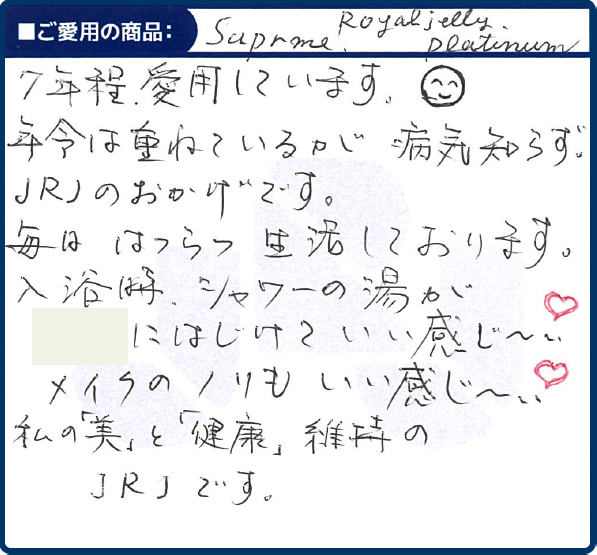 ■ご愛用の商品：
Suprme. Royaljelly. Platinum
7年程、愛用しています。
年令は重ねているが 病気知らず。
JRJのおかげです。
毎日 はつらつ 生活しております。
入浴時、シャワーの湯が
にはじけていい感じ～い
メイクのノリも いい感じ～い
私の「美」と「健康」維持の
JRJです。